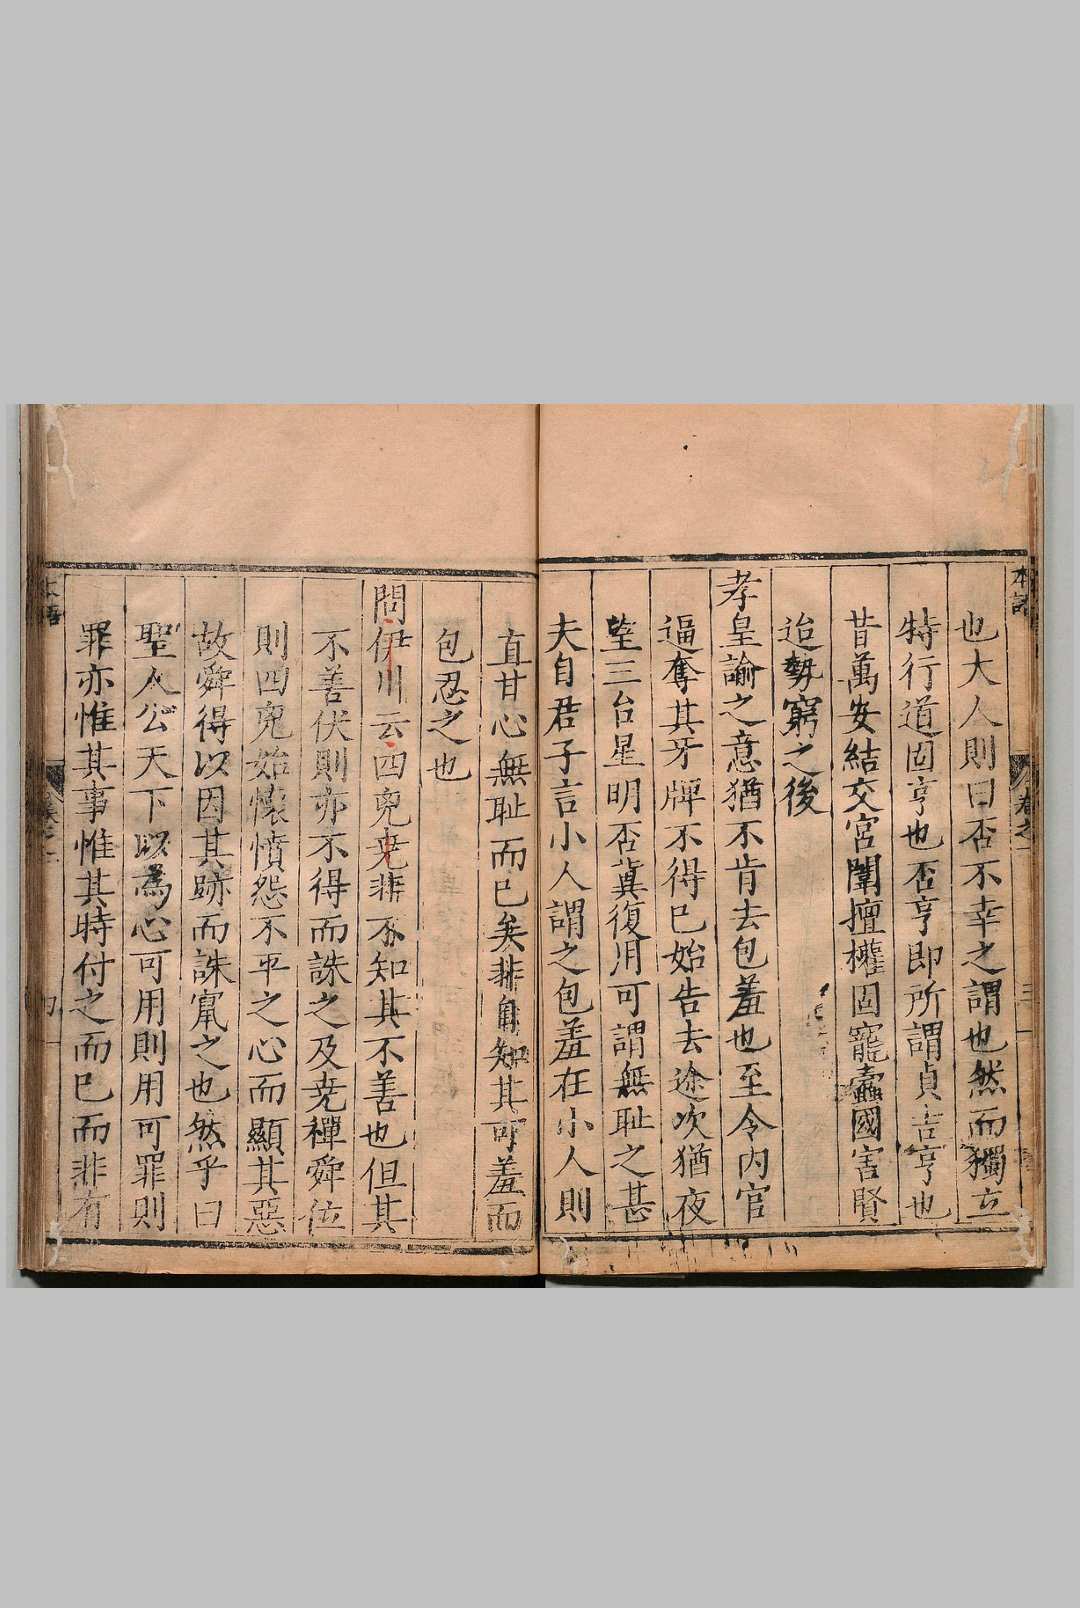 也大人則曰否不幸之謂也然而獨立
特行道固亨也否亨即所謂貞吉亨也
昔萬安結交宮闈擅權固寵蠹國害賢
迨勢窮之後
孝皇諭之意猶不肯去包羞也至令內官
逼奪其牙牌不得已始告去途次猶夜
望三台星明否冀復用可謂無耻之甚
夫自君子言小人謂之包羞在小人則
直甘心無耻而已矣非自知其可羞而
包忍之也
問伊川云四兇堯非不知其不善也但其
不善伏則亦不得而誅之及堯禪舜位
則四兇始懷憤怨不平之心而顯其惡
故舜得以因其跡而誅竄之也然乎曰
聖人公天下以為心可用則用可罪則
罪亦惟其事惟其時付之而已而非有